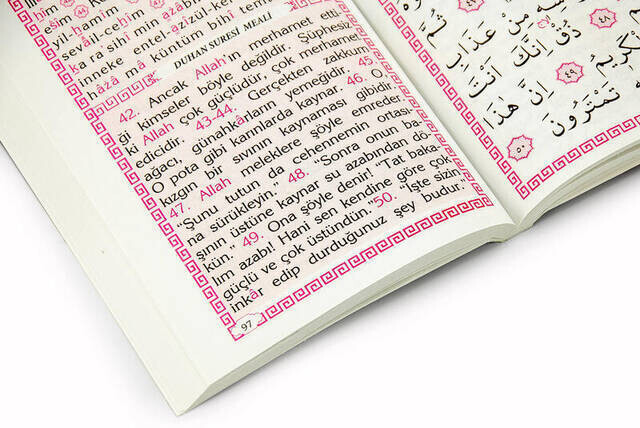 yil-hamîm
sevâil-cehîm
kara'sihî min azâbil-ha
inneke entel-azîzül-ke
hâzâ mâ küntüm bihî tem
DUHAN SURESİ MEALİ
42. Ancak Allah'ın merhamet etti
ği kimseler böyle değildir. Şüphesiz
ki Allah çok güçlüdür, çok merhamet
edicidir. 43-44. Gerçekten zakkum
ağacı, günahkâların yemeğidir. 45.
O pota gibi karınlarda kaynar. 46. O
kızgın bir sıvının kaynaması gibidir.
47. Allah meleklere şöyle emreder.
"Şunu tutun da cehennemin ortası-
na sürükleyin." 48. "Sonra onun ba-
şının üstüne kaynar su azabından dö-
kün." 49. Ona şöyle denir! "Tat baka-
lım azabı! Hani sen kendine göre çok
güçlü ve çok üstündün."50. "İşte sizin
inkâr edip durduğunuz şey budur.
97
مِنْ عَذَابِ
٤٨ ذُقْ إِنَّكَ أَنْتَ
الْكَرِيمُ ٤٩ إِنَّ هَذَا
تَمْتَرُونَ ٥٠